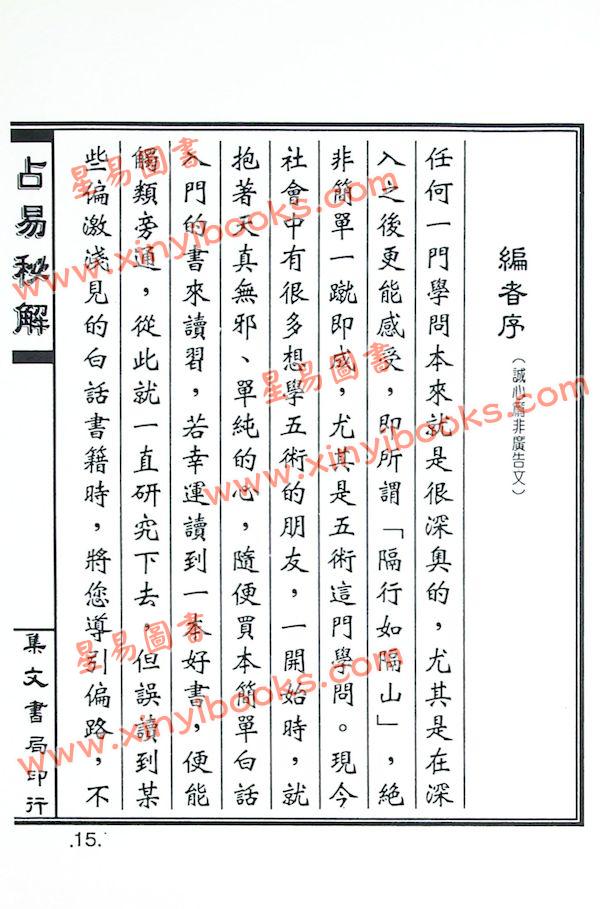 編者序（誠心篇非廣告文）
任何一門學問本來就是很深奧的，尤其是在深
入之後更能感受，即所謂「隔行如隔山」，絕
非簡單一蹴即成，尤其是五術這門學問。現今
社會中有很多想學五術的朋友，一開始時，就
抱著天真無邪、單純的心，隨便買本簡單白話
入門的書來讀習，若幸運讀到一本好書，便能
觸類旁通，從此就一直研究下去，但誤讀到某
些偏激淺見的白話書籍時，將您導引偏路，不
占易秘解
集文書局印行
.15.
星易圖書
www.xinyibooks.com
星易圖書
www.xinyibooks.com
星易圖書
www.xinyibooks.com
星易圖書
www.xinyibooks.com